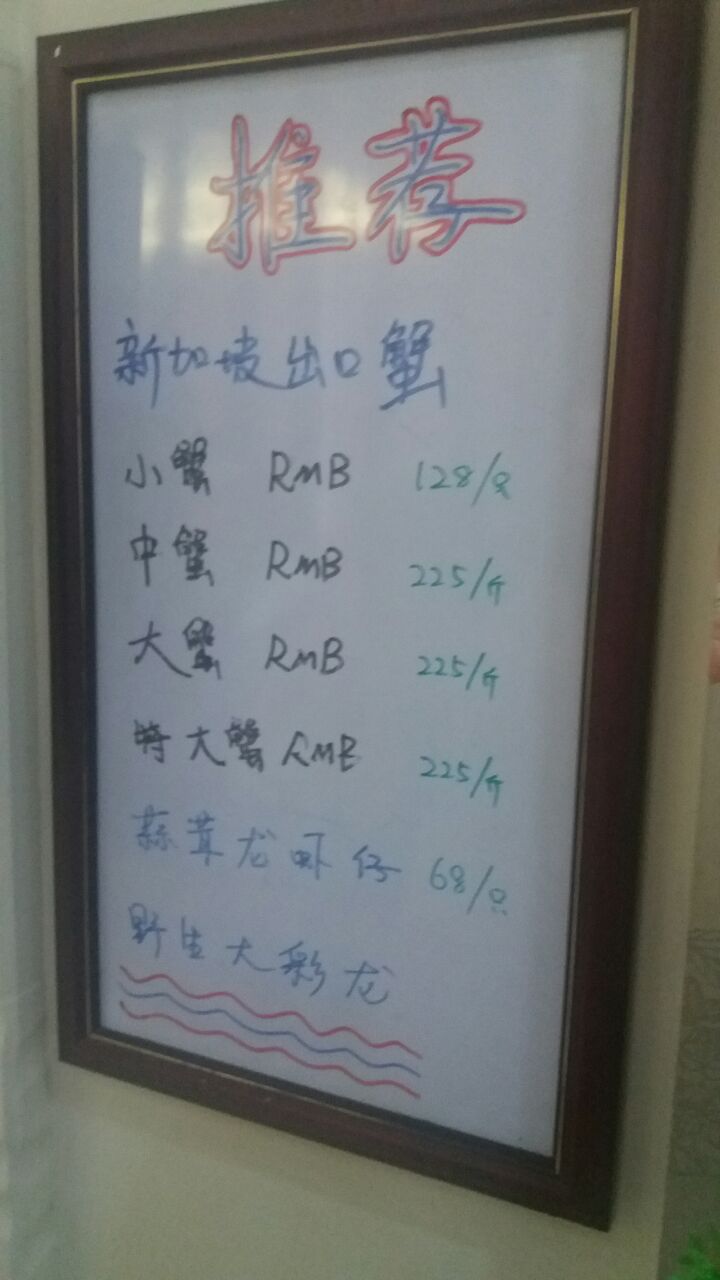 推荐
新加坡出口蟹
小蟹 RMB 128/只
中蟹 RMB 225/斤
大蟹 RMB 225/斤
特大蟹 RMB 225/斤
蒜茸龙虾仔 68/只
野生大彩龙